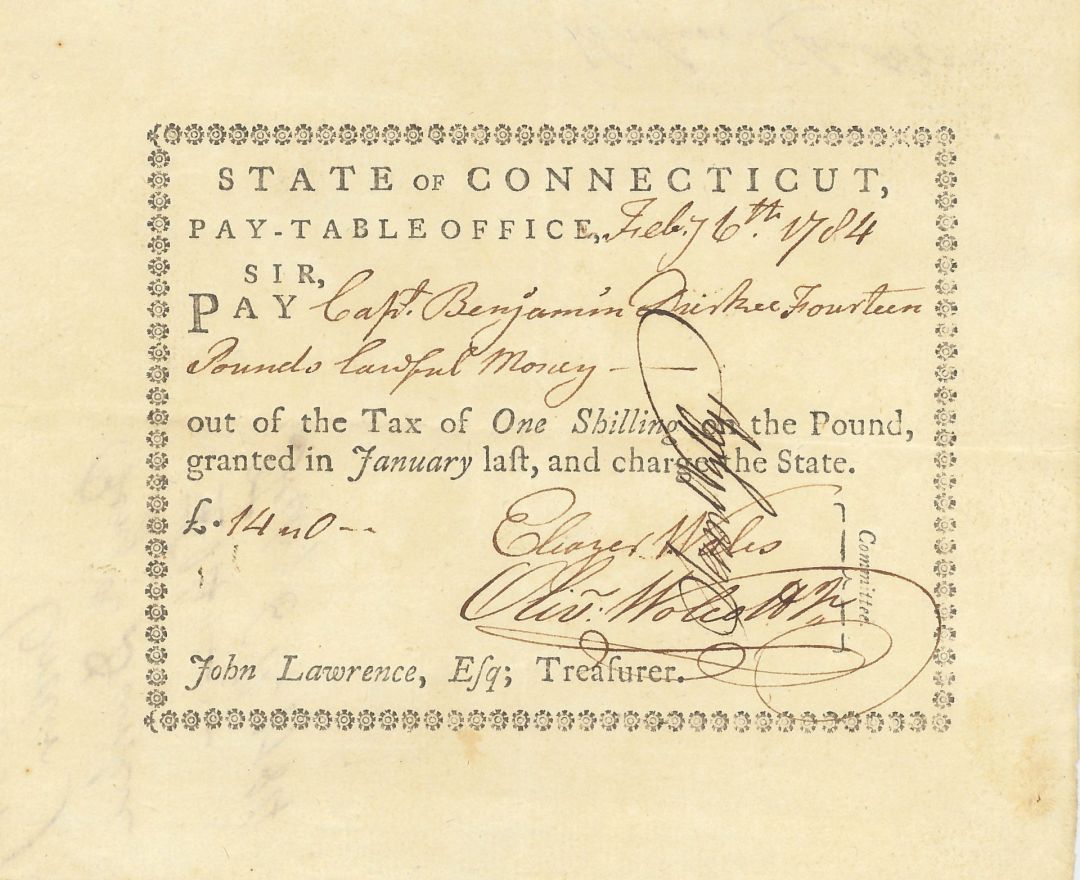 STATE OF CONNECTICUT,
PAY-TABLE OFFICE, Feby 6th. 1784
SIR,
PAY Capt. Benjamin Fourteen
Pounds lawful Money
out of the Tax of One Shilling on the Pound,
granted in January laſt, and charge the State.
£. 14 " 0 --
Eleazer Wales
Olivr. Wolcott Jr
Committee
John Lawrence, Eſq; Treaſurer.